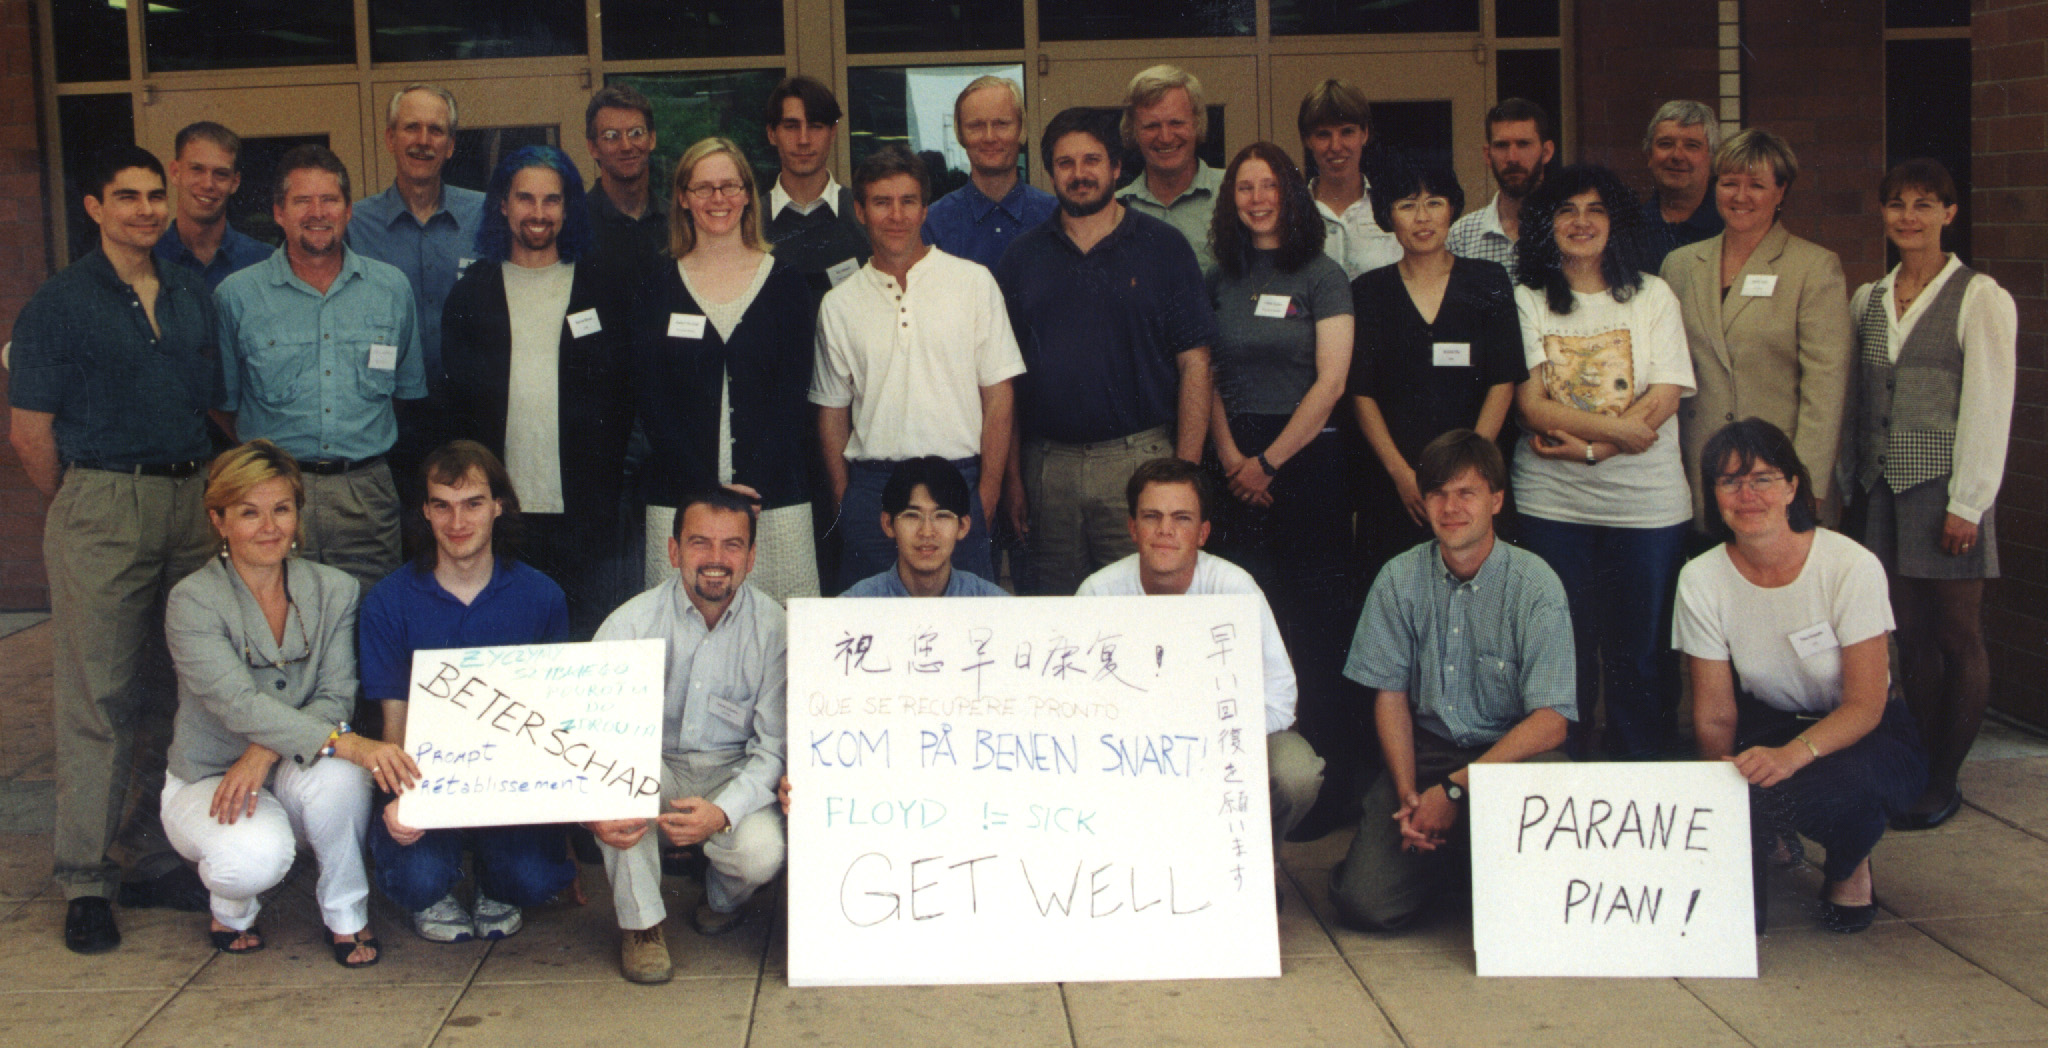 ŻYCZYMY
SZYBKIEGO
POWROTU
DO
ZDROWIA
BETERSCHAP
PROMPT
Rétablissement
祝您早日康复!
QUE SE RECUPERE PRONTO
KOM PÅ BENEN SNART!
FLOYD != SICK
GET WELL
早い回復を願います
PARANE
PIAN!